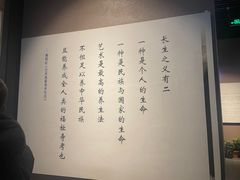 长生之义有二
一种是个人的生命
一种是民族与国家的生命
艺术是最高的养生法
不但足以养中华民族
且能养成全人类的福祉寿考也